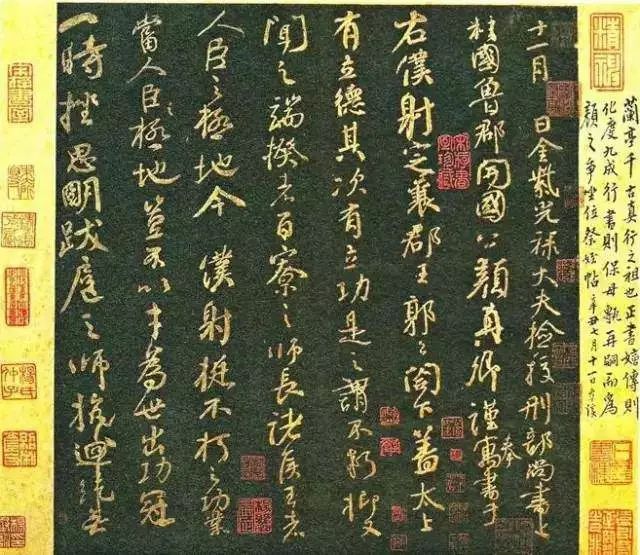 蘭亭千古真行之祖也正書嬗傳則
化度九成行書則保母再嗣而為
顏之爭坐位祭姪帖 辛丑七月十一日
十一月 日金紫光祿大夫檢校刑部尚書上
柱國魯郡開國公顏真卿謹奉寓書于
右僕射定襄郡王郭公閣下蓋太上
有立德其次有立功是之謂不朽抑又
聞之端揆者百寮之師長諸侯王者
人臣之極地今 僕射挺不朽之功業
當人臣之極地豈不以才為世出功冠
一時挫思明跋扈之師抗迴紇無